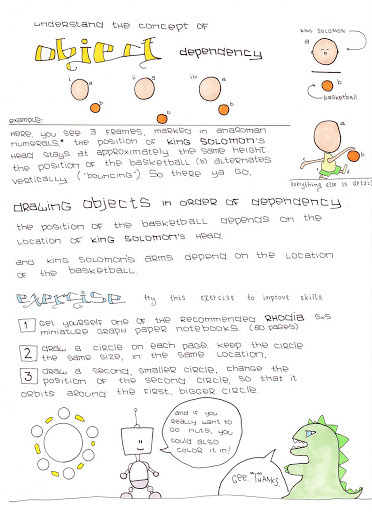 understand the concept of
object dependency
KING SOLOMON
a
b
basketball
i
a
b
ii
a
b
iii
a
b
example:
Here, you see 3 frames, marked in anaroman
numerals.* the position of KING SOLOMON'S
Head stays at approximately the same height.
the position of the basketball (b) alternates
vertically ('bouncing'). So there ya go.
a
b
everything else is detail
drawing objects in order of dependency
the position of the basketball depends on the
location of KING SOLOMON'S Head.
and KING SOLOMON'S arms depend on the location
of the basketball.
exercise
try this exercise to improve skills.
1 get yourself one of the recommended RHODIA 5x5
miniature graph paper notebooks. (80 pages)
2 draw a circle on each page. keep the circle
the same size, in the same location.
3 draw a second, smaller circle. change the
position of the second circle, so that it
orbits around the first, bigger circle.
and if you
really want to
go nuts, you
could also
color it in!
Gee. THANKS.